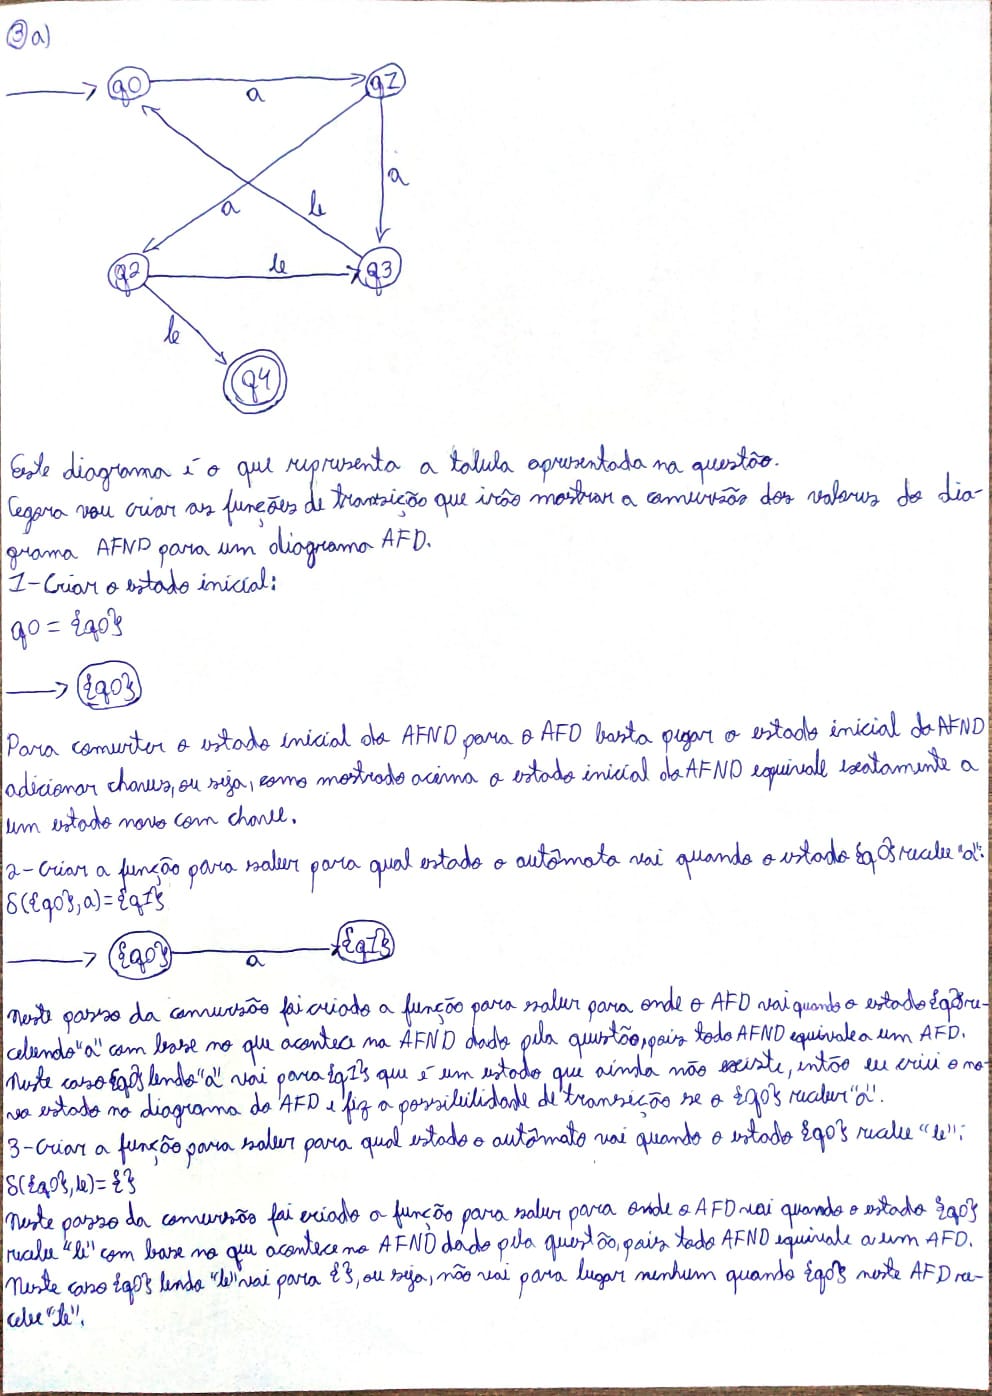 3 a)
q0 a q1
a
a b
q2 b q3
b
q4
Este diagrama é o que representa a tabela apresentada na questão.
Agora vou criar as funções de transição que irão mostrar a conversão dos valores do dia-
grama AFND para um diagrama AFD.
1-Criar o estado inicial:
q0 = {q0}
{q0}
Para converter o estado inicial do AFND para o AFD basta pegar o estado inicial do AFND
adicionar chaves, ou seja, como mostrado acima o estado inicial do AFND equivale exatamente a
um estado novo com chave.
2-Criar a função para saber para qual estado o autômato vai quando o estado {q0} recebe "a":
δ({q0},a)={q1}
{q0} a {q1}
Neste passo da conversão foi criado a função para saber para onde o AFD vai quando o estado {q0} re-
cebendo "a" com base no que acontece na AFND dado pela questão, pois todo AFND equivale a um AFD.
Neste caso {q0} lendo "a" vai para {q1} que é um estado que ainda não existe, então eu criei o no-
vo estado no diagrama do AFD e fiz a possibilidade de transição se o {q0} receber "a".
3-Criar a função para saber para qual estado o autômato vai quando o estado {q0} recebe "b":
δ({q0},b)={}
Neste passo da conversão foi criado a função para saber para onde o AFD vai quando o estado {q0}
recebe "b" com base no que acontece no AFND dado pela questão, pois todo AFND equivale a um AFD.
Neste caso {q0} lendo "b" vai para {}, ou seja, não vai para lugar nenhum quando {q0} neste AFD re-
cebe "b".